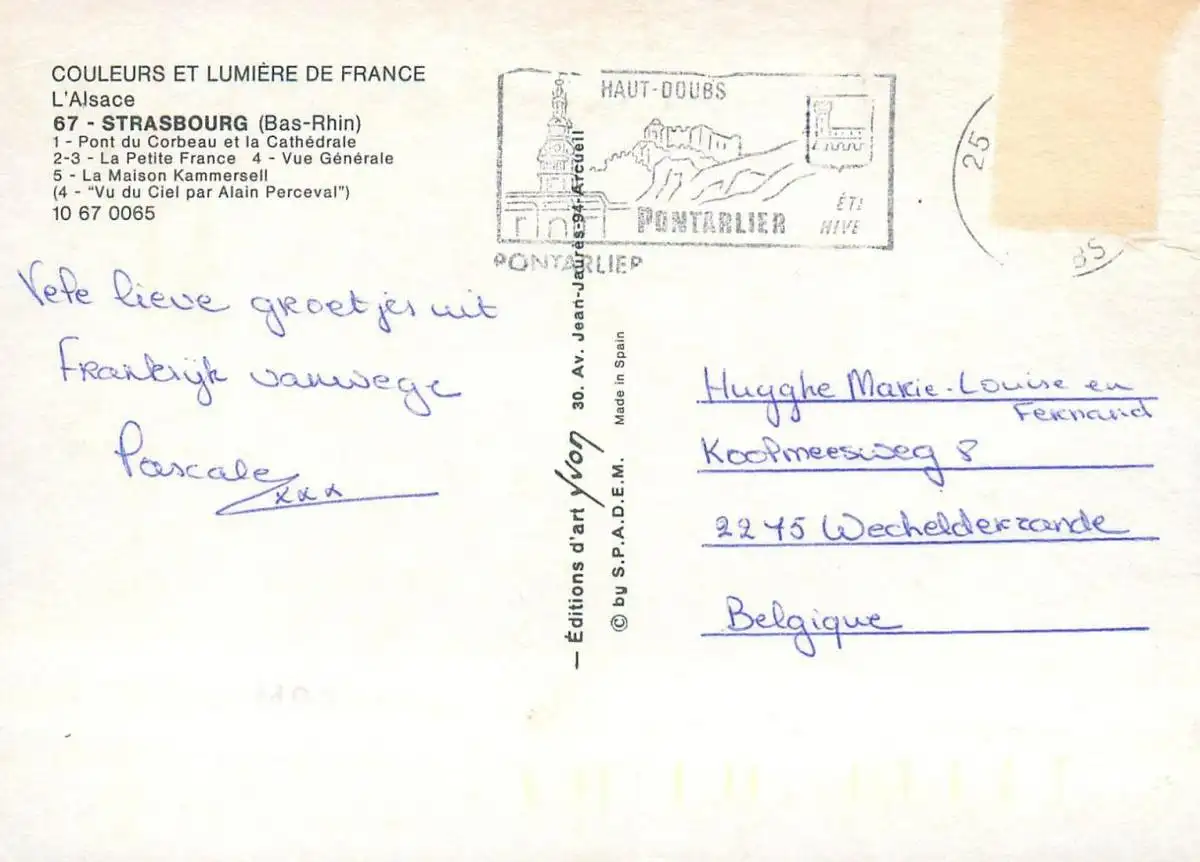 COULEURS ET LUMIÈRE DE FRANCE
L'Alsace
67 - STRASBOURG (Bas-Rhin)
1 - Pont du Corbeau et la Cathédrale
2-3 - La Petite France 4 - Vue Générale
5 - La Maison Kammersell
(4 - “Vu du Ciel par Alain Perceval”)
10 67 0065
HAUT-DOUBS
PONTARLIER
ÉTÉ
HIVE
PONTARLIER
25
85
Vele lieve groetjes uit
Frankrijk vanwege
Pascale
xxx
— Éditions d'art Yvon 30. Av. Jean-Jaurès-94-Arcueil
© by S.P.A.D.E.M. Made in Spain
Huyghe Marie-Louise en
Fernand
Koolmeesweg 8
2275 Wechelderzande
Belgique